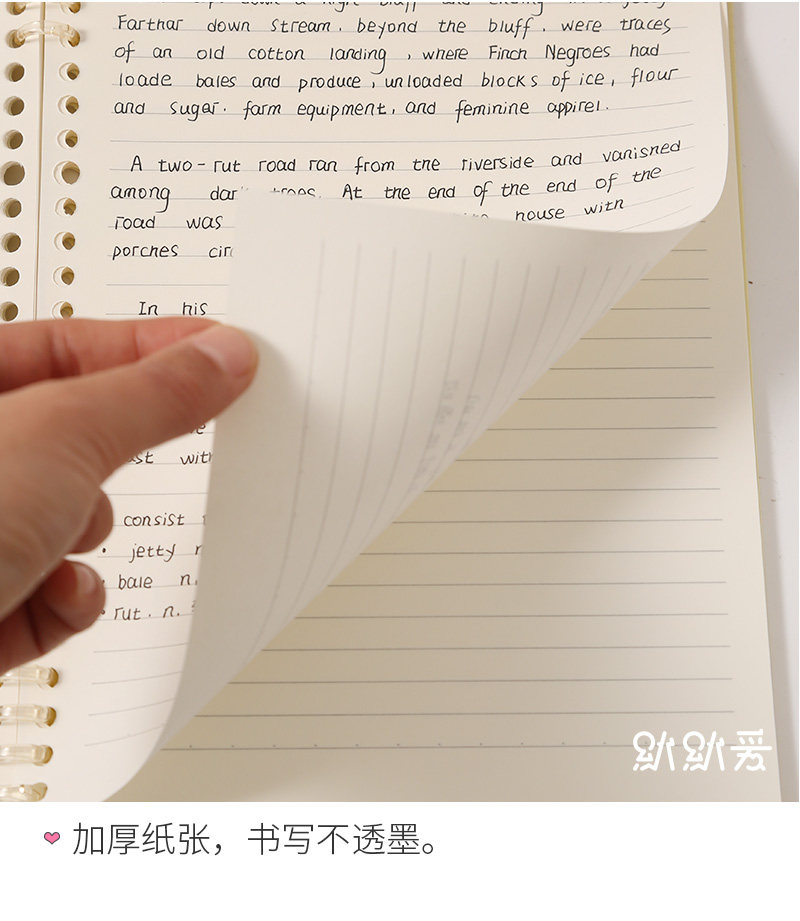 Farthar down stream. beyond the bluff. were traces
of an old cotton landing, where Finch Negroes had
loade bales and produce, unloaded blocks of ice, flour
and sugar. farm equipment, and feminine appirel.
A two-rut road ran from the riverside and vanished
among trees. At the end of the end of the
road was house with
porches
In his
with
consist
• jetty
• bale n.
• rut. n.
就就爱
加厚纸张，书写不透墨。